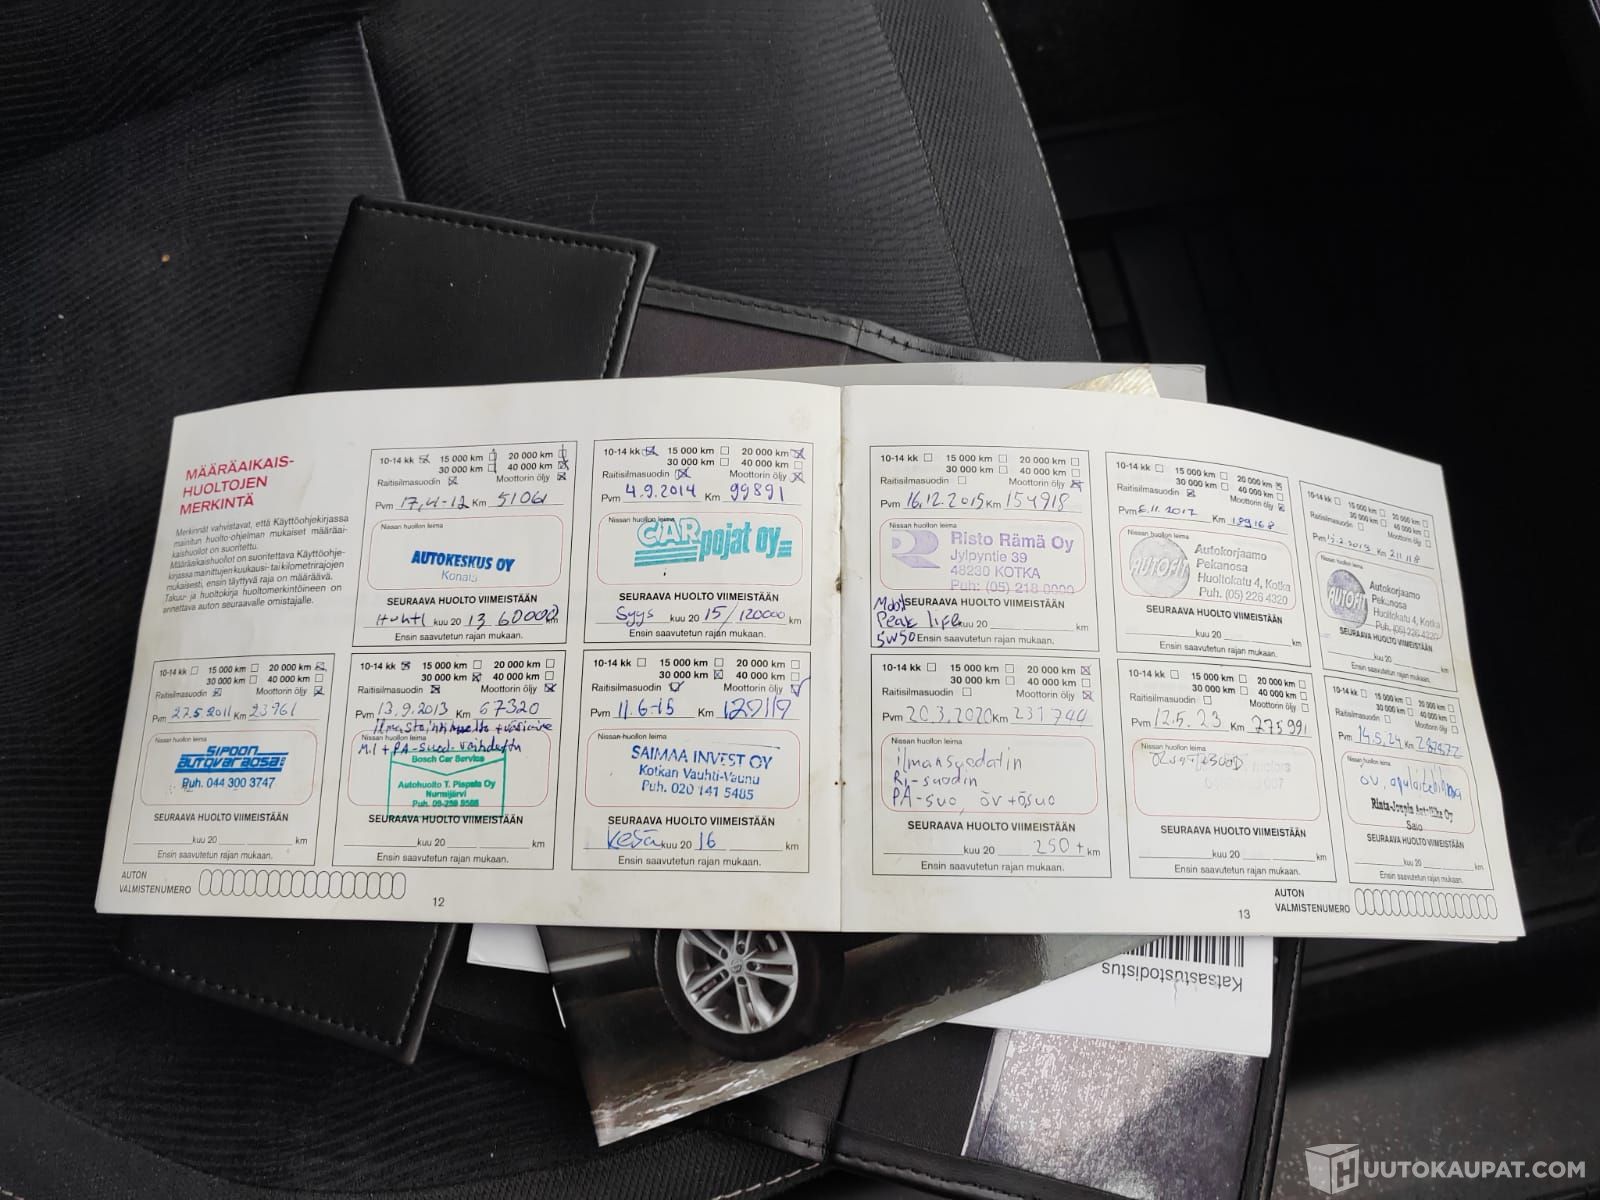 MÄÄRÄAIKAIS-
HUOLTOJEN
MERKINTÄ
Merkinnät vahvistavat, että Käyttöohjekirjassa
mainitun huolto-ohjelman mukaiset määräai-
kaishuollot on suoritettu.
Määräaikaishuollot on suoritettava Käyttöohje-
kirjassa mainittujen kuukausi- tai kilometrirajojen
mukaisesti, ensin täyttyvä raja on määräävä.
Takuu- ja huoltokirja huoltomerkintöineen on
annettava auton seuraavalle omistajalle.
10-14 kk 15 000 km 20 000 km
30 000 km 40 000 km
Raitisilmasuodin Moottorin öljy
Pvm 17.4-12 Km 51061
Nissan huollon leima
AUTOKESKUS OY
Konala
SEURAAVA HUOLTO VIIMEISTÄÄN
Huhti kuu 20 13 60000 km
Ensin saavutetun rajan mukaan.
10-14 kk 15 000 km 20 000 km
30 000 km 40 000 km
Raitisilmasuodin Moottorin öljy
Pvm 4.9.2014 Km 99891
Nissan huollon leima
CAR pojat oy
SEURAAVA HUOLTO VIIMEISTÄÄN
Syys kuu 20 15/120000 km
Ensin saavutetun rajan mukaan.
10-14 kk 15 000 km 20 000 km
30 000 km 40 000 km
Raitisilmasuodin Moottorin öljy
Pvm 27.5.2011 Km 23961
Nissan huollon leima
SIPOON
autovaraosa
Puh. 044 300 3747
SEURAAVA HUOLTO VIIMEISTÄÄN
kuu 20 km
Ensin saavutetun rajan mukaan.
10-14 kk 15 000 km 20 000 km
30 000 km 40 000 km
Raitisilmasuodin Moottorin öljy
Pvm 13.9.2013 Km 67320
Nissan huollon leima
M.I + PA-suod. vaihdettu
Bosch Car Service
Autohuolto T. Pispala Oy
Nurmijärvi
SEURAAVA HUOLTO VIIMEISTÄÄN
kuu 20 km
Ensin saavutetun rajan mukaan.
10-14 kk 15 000 km 20 000 km
30 000 km 40 000 km
Raitisilmasuodin Moottorin öljy
Pvm 11.6-15 Km 120119
Nissan huollon leima
SAIMAA INVEST OY
Kotkan Vauhti-Vaunu
Puh. 020 141 5485
SEURAAVA HUOLTO VIIMEISTÄÄN
Kesä kuu 20 16 km
Ensin saavutetun rajan mukaan.
AUTON
VALMISTENUMERO
12
10-14 kk 15 000 km 20 000 km
30 000 km 40 000 km
Raitisilmasuodin Moottorin öljy
Pvm 16.12.2015 Km 154918
Nissan huollon leima
Risto Rämä Oy
Jylpyntie 39
48230 KOTKA
Puh: (05) 218 0000
SEURAAVA HUOLTO VIIMEISTÄÄN
Mobil
Peak life kuu 20 km
5W50 Ensin saavutetun rajan mukaan.
10-14 kk 15 000 km 20 000 km
30 000 km 40 000 km
Raitisilmasuodin Moottorin öljy
Pvm 6.11.2017 Km 189168
Nissan huollon leima
AUTOFIT
Autokorjaamo
Pekanosa
Huoltokatu 4, Kotka
Puh. (05) 226 4320
SEURAAVA HUOLTO VIIMEISTÄÄN
kuu 20 km
Ensin saavutetun rajan mukaan.
10-14 kk 15 000 km 20 000 km
30 000 km 40 000 km
Raitisilmasuodin Moottorin öljy
Pvm Km
Nissan huollon leima
AUTOFIT
Autokorjaamo
Pekanosa
Huoltokatu 4, Kotka
Puh. (05) 226 4320
SEURAAVA HUOLTO VIIMEISTÄÄN
kuu 20 km
Ensin saavutetun rajan mukaan.
10-14 kk 15 000 km 20 000 km
30 000 km 40 000 km
Raitisilmasuodin Moottorin öljy
Pvm 20.3.2020 Km 231740
Nissan huollon leima
ilmansuodatin
Ri-suodin
PA-suo, öv+ösuo
SEURAAVA HUOLTO VIIMEISTÄÄN
kuu 20 250+ km
Ensin saavutetun rajan mukaan.
10-14 kk 15 000 km 20 000 km
30 000 km 40 000 km
Raitisilmasuodin Moottorin öljy
Pvm 12.5.23 Km 275991
Nissan huollon leima
SEURAAVA HUOLTO VIIMEISTÄÄN
kuu 20 km
Ensin saavutetun rajan mukaan.
10-14 kk 15 000 km 20 000 km
30 000 km 40 000 km
Raitisilmasuodin Moottorin öljy
Pvm 14.5.24 Km
Nissan huollon leima
Rinta-Joupin Autoliike Oy
Salo
SEURAAVA HUOLTO VIIMEISTÄÄN
kuu 20 km
Ensin saavutetun rajan mukaan.
AUTON
VALMISTENUMERO
13
Katsastustodistus
HUUTOKAUPAT.COM